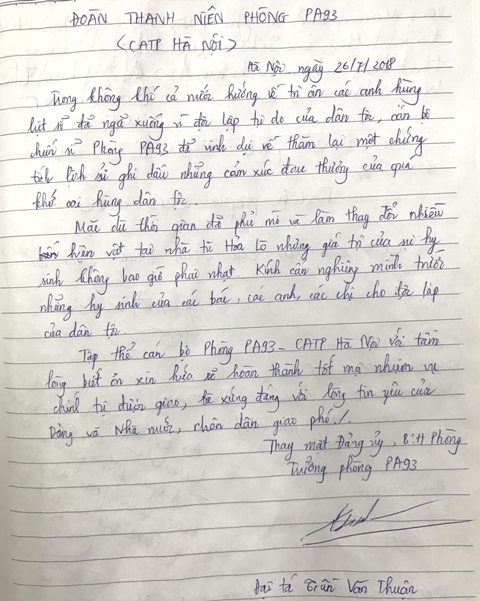 ĐOÀN THANH NIÊN PHÒNG PA93
(CATP HÀ NỘI)
Hà Nội ngày 26/7/2018
Trong không khí cả nước hướng về tri ân các anh hùng
liệt sĩ đã ngã xuống vì độc lập tự do của dân tộc, cán bộ
chiến sĩ Phòng PA93 đã vinh dự về thăm lại một chứng
tích lịch sử ghi dấu những cảm xúc đau thương của quá
khứ oai hùng dân tộc.
Mặc dù thời gian đã phủ mờ và làm thay đổi nhiều
hiện vật tại nhà tù Hỏa Lò nhưng giá trị của sự hy
sinh không bao giờ phai nhạt. Kính cẩn nghiêng mình trước
những hy sinh của các bác, các anh, các chị cho độc lập
của dân tộc.
Tập thể cán bộ Phòng PA93 - CATP Hà Nội với tấm
lòng biết ơn xin hứa sẽ hoàn thành tốt mọi nhiệm vụ
chính trị được giao, xứng đáng với lòng tin yêu của
Đảng và Nhà nước, nhân dân giao phó./.
Thay mặt Đảng ủy, BCH Phòng
Trưởng phòng PA93
Đại tá Trần Văn Thuận